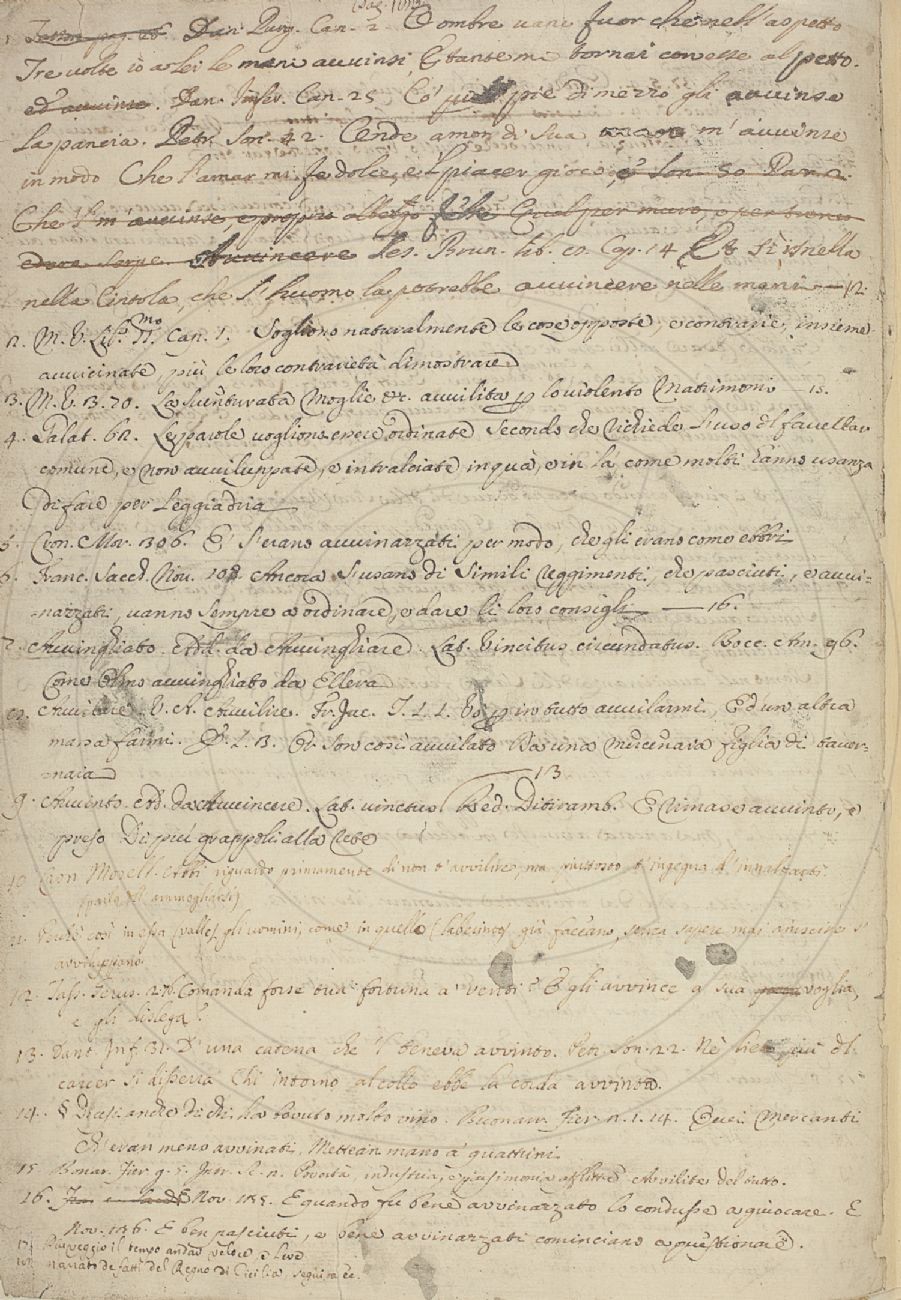 1. Dan. Purg. Can. 2 O ombre vane fuor che nell'aspetto
Tre volte io a lei le mani avvinsi, E tante mi tornai con esse al petto.
ed avvinse. Dan. Infer. Can. 25 Co' piè di mezzo gli avvinse
la pancia. Petr. Son. 42. Cende amor di sua m'avvinse
in modo Che l'amar mi fe dolce, e'l piacer gioco, e Son. 50
Che m'avvinse, e proprio albergo felse Qual per muro, o per tronco
edera serpe. Avvincere Tes. Brun. lib. Cap. 14 Et sì isnella
nella Cintola, che l'huomo la potrebbe avvincere nelle mani — 12.
2. M. V. Lib. 11.mo Can. 1. Sogliono naturalmente le cose opposte, e contrarie, insieme
avvicinate, più le loro contrarietà dimostrare
3. M. V. 13. 70. La sventurata Moglie &c. avvilita p lo violento Matrimonio — 15.
4. Galat. 62. Le parole vogliono essere ordinate secondo che richiede l'uso dl favellar
comune, e non avviluppate, e intralciate in quà, e in là, come molti hanno usanza
di fare per leggiadria
5. Cron. Mor. 306. E s'erano avvinazzati per modo, che gli erano come ebbri
6. Franc. Sacch. Nov. Ancora s'usano di simili reggimenti, che pasciuti, e avvi-
nazzati, vanno sempre a ordinare, e dare li loro consigli — 16.
7. Avvinghiato. Add. da Avvinghiare. Lat. Vinctus circundatus. Bocc. Am. 96.
Come Olmo avvinghiato da Ellera
8. Avvilare V. A. Avvilire. Fr. Jac. T. 1. 1. p in tutto avvilarmi, E d'un altra
massa farmi. 1. 13. Et son così avvilato Da una mercenara figlia di taver-
naia
13
9. Avvinto. Ad. da Avvincere. Lat. vinctus. Red. Ditiramb. E rimase avvinto, e
preso Di più grappoli alla rete
10 Cron Morell. Abbi riguardo primamente di non t'avvilire, ma piuttosto t'ingegna d'innalzarti
(parla dl ammogliarsi)
11. così in essa (valle) gli uomini, come in quello (laberinto) già faceano, senza sapere mai riuscire s'
avviluppano.
12. Tass. Jerus. 2. Comanda forse tua fortuna a' venti? E gli avvince a sua voglia,
e gli dislega?
13. Dant. Inf. 31. D'una catena che 'l teneva avvinto. Petr. Son. 22. Nè lieto più dl
carcer si disserra Chi intorno al collo ebbe la corda avvinta.
14. § di chi ha bevuto molto vino. Buonarr. Fier. 2. 1. 14. Quei Mercanti
Ch'eran meno avvinati, Mettean mano a' quattrini.
15. Bonar. Fier g. 5. Povertà, industria, e parsimonia afflitte Avvilite del tutto.
16. Nov. 185. E quando fu bene avvinazzato lo condusse a giuocare. E
Nov. 186. E ben pasciuti, e bene avvinazzati cominciano a questionare.
17. il tempo andar veloce, e leve
18. narrato de fatti del Regno di Cicilia, seguirà &c.